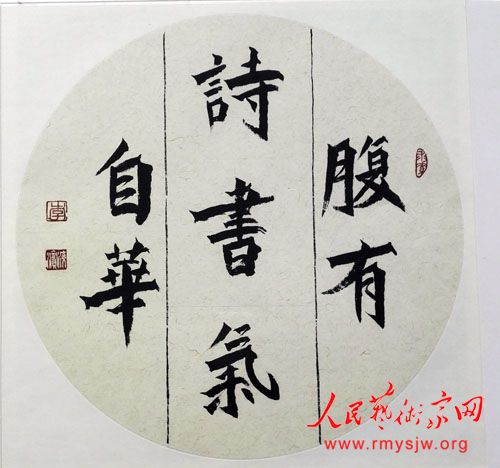 腹有
詩書氣
自華
人民藝術家网
www.rmysjw.org